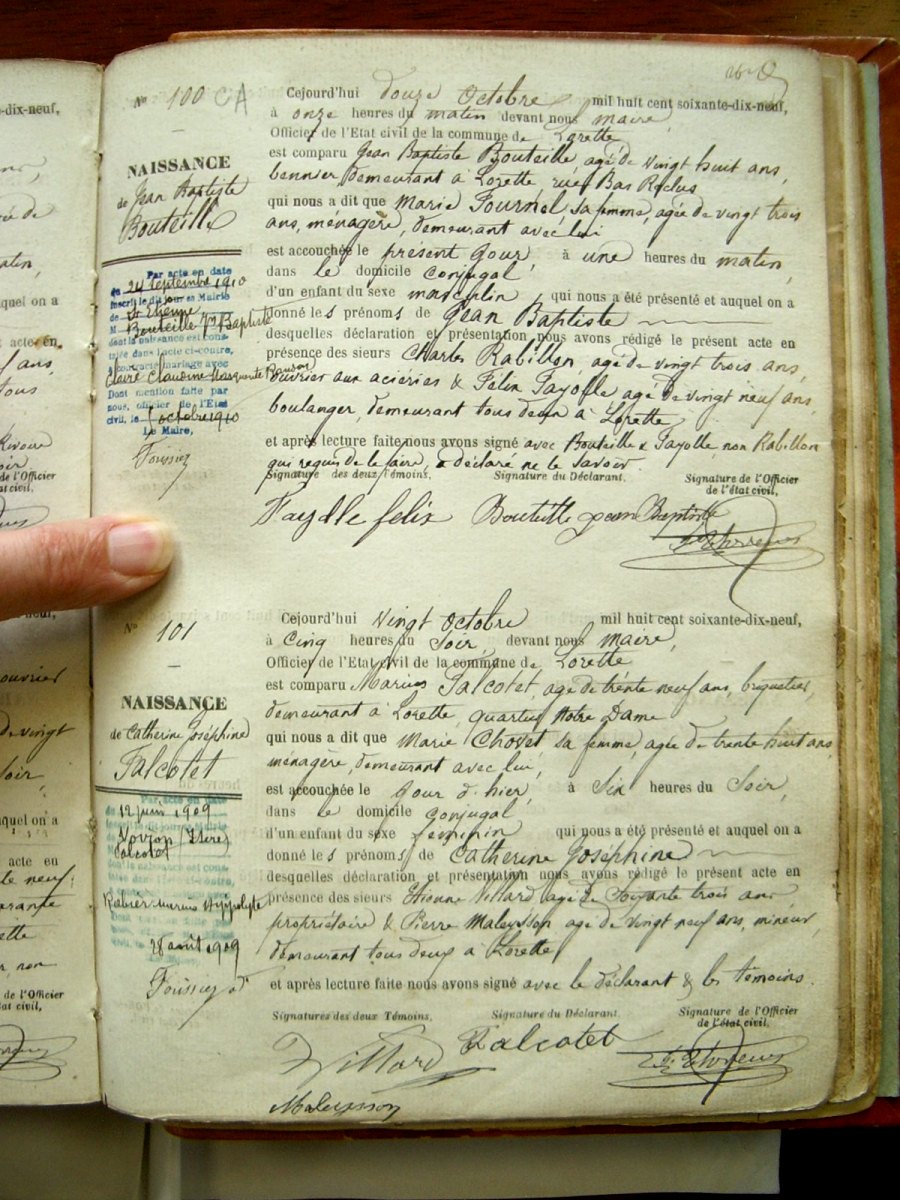 -dix-neuf,
No 100 CA
NAISSANCE
de Jean Baptiste
Bouteille
Par acte en date
du 24 Septembre 1910
inscrit le dit jour en Mairie
de St Etienne
M Bouteille Jean Baptiste
dont la naissance est cons-
tatée dans l'acte ci-contre,
a contracté mariage avec
Claire Claudine Marguerite
Dont mention faite par
nous, officier de l'Etat
civil, le 1 octobre 1910
Le Maire,
Cejourd'hui douze Octobre mil huit cent soixante-dix-neuf,
à onze heures du matin devant nous maire,
Officier de l'Etat civil de la commune de Lorette
est comparu Jean Baptiste Bouteille, agé de vingt huit ans,
demeurant à Lorette, rue Bas Reclus
qui nous a dit que Marie Fournel, sa femme, agée de vingt trois
ans, ménagère, demeurant avec lui
est accouchée le présent jour, à une heures du matin,
dans le domicile conjugal
d'un enfant du sexe masculin, qui nous a été présenté et auquel on a
donné les prénoms de Jean Baptiste
desquelles déclaration et présentation nous avons rédigé le présent acte en
présence des sieurs Charles Rabillon, agé de vingt trois ans,
ouvrier aux aciéries & Félix Fayolle agé de vingt neuf ans
boulanger, demeurant tous deux à Lorette
et après lecture faite nous avons signé avec Bouteille & Fayolle non Rabillon
qui requis de le faire, a déclaré ne le savoir.
Signature des deux Témoins. Signature du Déclarant. Signature de l'Officier
de l'état civil,
Fayolle felix Bouteille jean Baptiste
No 101
NAISSANCE
de Catherine Joséphine
Falcotet
Par acte en date
du 12 juin 1909
Voiron (Isère)
Falcotet
Marius Hyppolyte
28 août 1909
Cejourd'hui vingt Octobre mil huit cent soixante-dix-neuf,
à Cinq heures du Soir, devant nous maire,
Officier de l'Etat civil de la commune de Lorette
est comparu Marius Falcotet, agé de trente neuf ans, briquetier,
demeurant à Lorette, quartier Notre Dame
qui nous a dit que Marie Chovet sa femme, agée de trente huit ans
ménagère, demeurant avec lui,
est accouchée le jour d'hier, à Six heures du Soir,
dans le domicile conjugal
d'un enfant du sexe féminin qui nous a été présenté et auquel on a
donné les prénoms de Catherine Joséphine
desquelles déclaration et présentation nous avons rédigé le présent acte en
présence des sieurs Etienne Villard agé de Soixante trois ans
propriétaire & Pierre Maleysson agé de vingt neuf ans, mineur
demeurant tous deux à Lorette
et après lecture faite nous avons signé avec le déclarant & les témoins.
Signatures des deux Témoins, Signature du Déclarant. Signature de l'Officier
de l'état civil,
Villard Falcotet
Maleysson